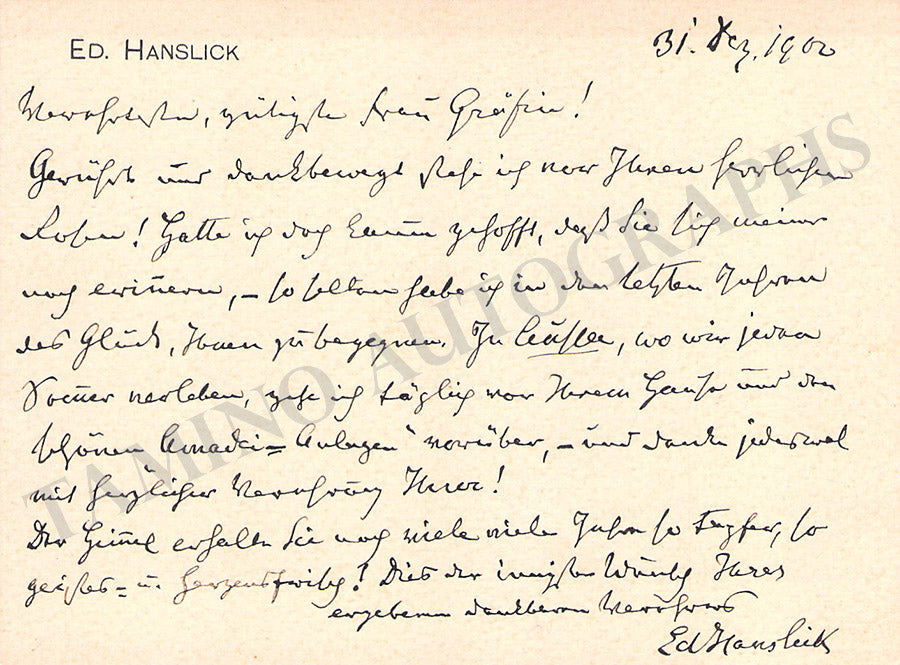 ED. HANSLICK
31. Dez. 1900
Verehrteste, gütigste Frau Gräfin!
Gerührt und dankbewegt stehe ich vor Ihren herrlichen
Rosen! Hatte ich doch kaum gehofft, daß Sie sich meiner
noch erinnern, – so selten habe ich in den letzten Jahren
das Glück, Ihnen zu begegnen. In, wo wir jeden
Sommer verleben, gehe ich täglich vor Ihrem Hause und den
schönen Amadei= Anlagen" vorüber, – und danke jedesmal
mit herzlicher Verehrung Ihrer!
Der Himmel erhalte Sie noch viele viele Jahre so tapfer, so
geistes= u. herzensfrisch! Dies der innigste Wunsch Ihres
ergebenen dankbaren Verehrers
EdHanslick
TAMINO AUTOGRAPHS